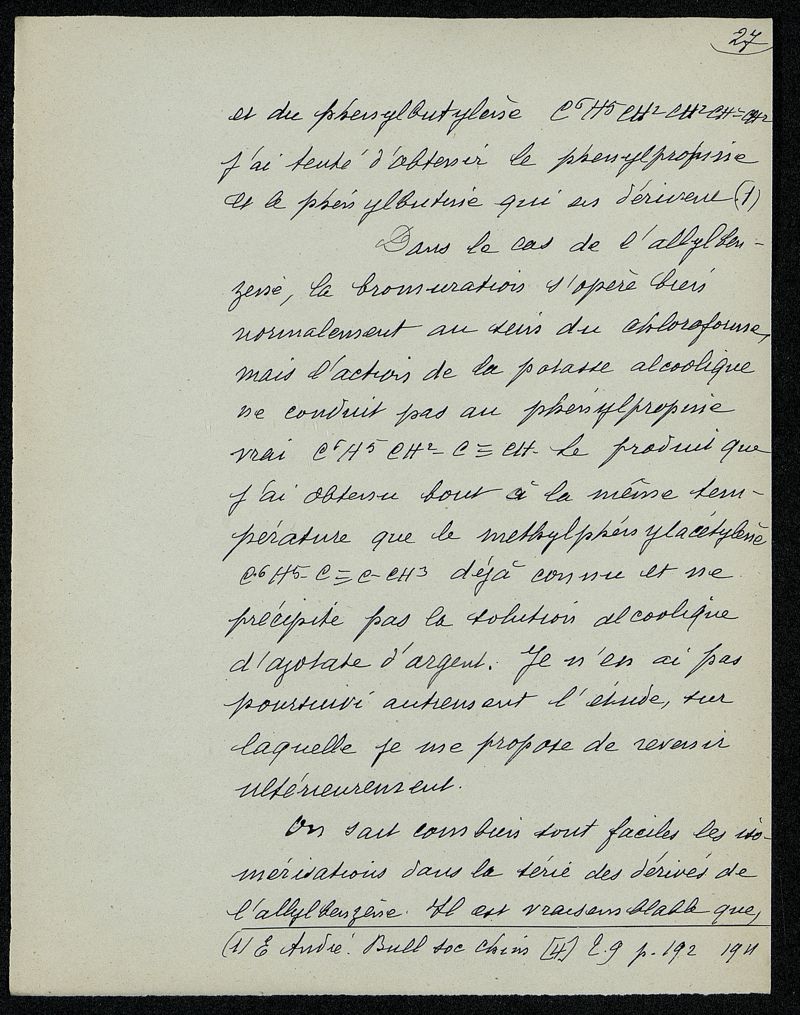 27
et du phenylbutylène C⁶H⁵CH²CH²CH=CH²
j'ai tenté d'obtenir le phenylpropine
et le phénylbutine qui en dérivent (1)
Dans le cas de l'allylben-
zene, la bromuration s'opère bien
normalement au sein du chloroforme,
mais l'action de la potasse alcoolique
ne conduit pas au phénylpropine
vrai C⁶H⁵CH²-C≡CH- Le produit que
j'ai obtenu bout à la même tem-
pérature que le methylphénylacétylène
C⁶H⁵-C≡C-CH³ déjà connu et ne
précipite pas la solution alcoolique
d'azotate d'argent. Je n'en ai pas
poursuivi autrement l'étude, sur
laquelle je me propose de revenir
ultérieurement.
On sait combien sont faciles les iso-
mérisations dans la série des dérivés de
l'allylbenzène. Il est vraisemblable que,
(1) E André. Bull soc chim [4] t.9 p.192 1911